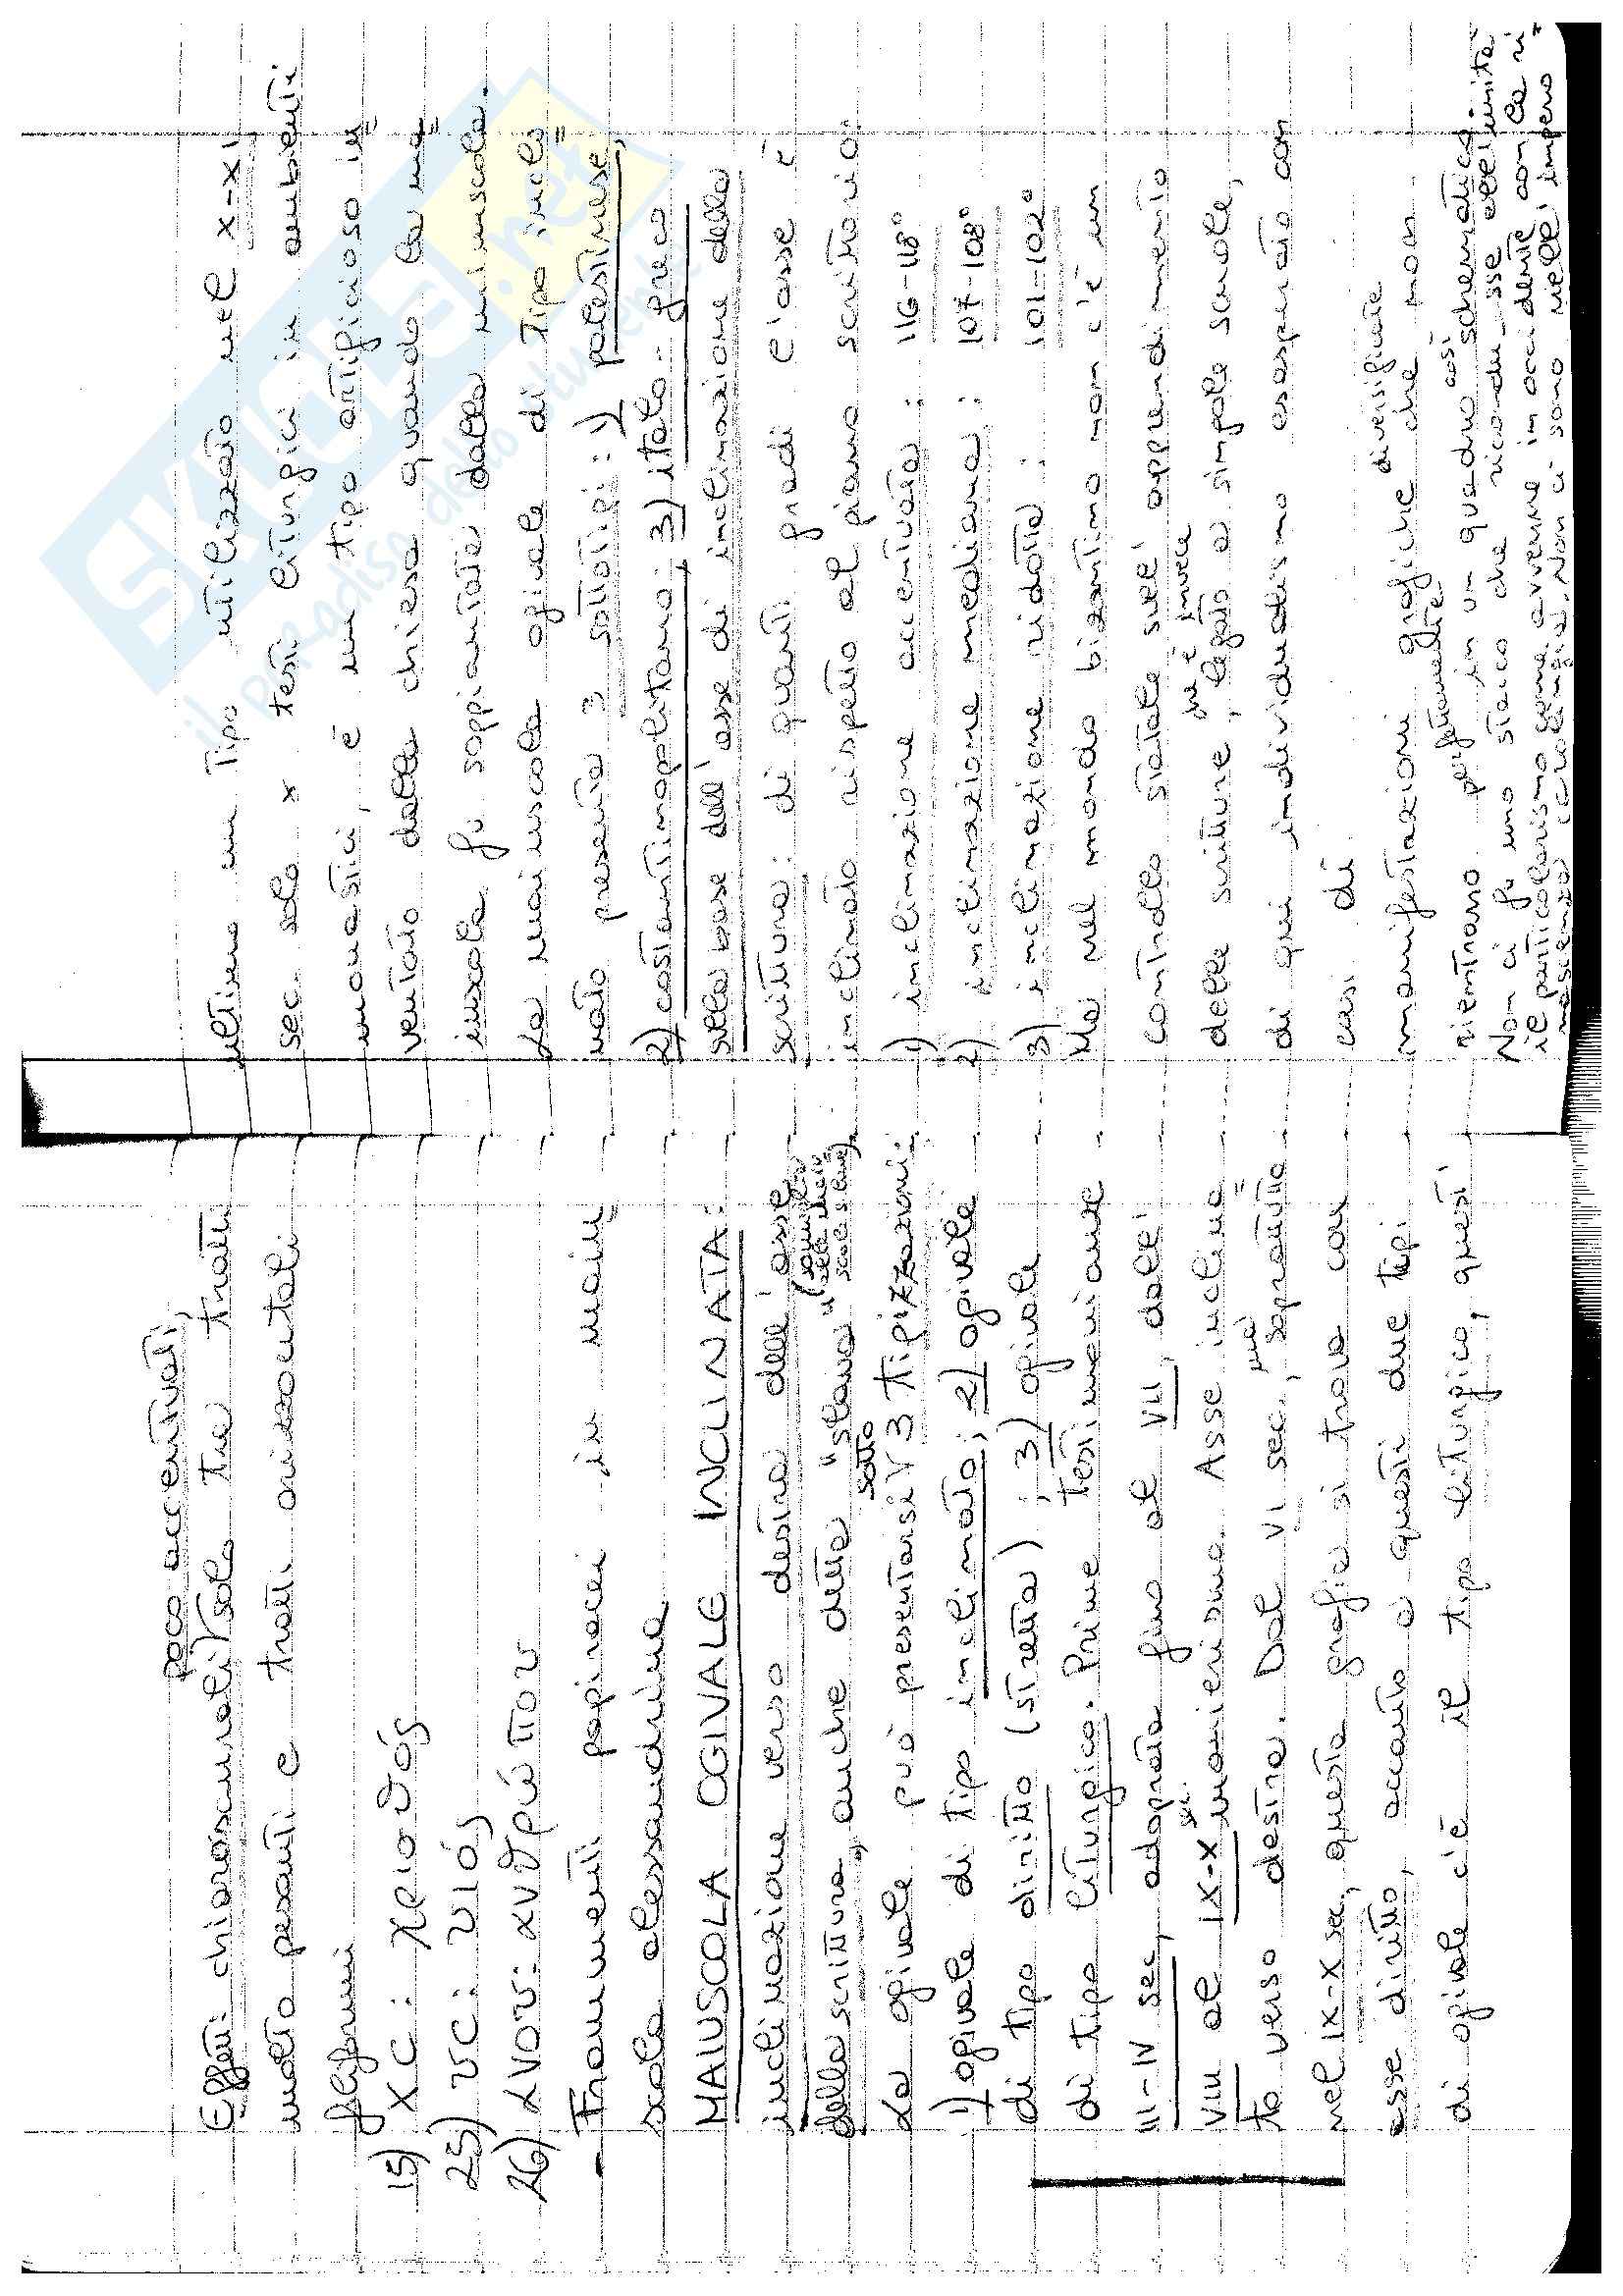 poco accentuati,
Effetti chiaroscurali solo tra tratti
molto pesanti e tratti orizzontali
filiformi
15) XC: χριοϑός
25) υC: υιός
26) ανου: ανϑρώπου
- Frammenti papiracei in maiu=
scola alessandrina
MAIUSCOLA OGIVALE INCLINATA:
inclinazione verso destra dell'asse
della scrittura, anche detta "slava" (simile
alle
scale slave)
La ogivale può presentarsi sotto 3 tipizzazioni:
1) ogivale di tipo inclinato; 2) ogivale
di tipo diritto (stretta); 3) ogivale
di tipo liturgico. Prime testimonianze
III-IV sec, adoprata fino al VII, dall'
VIII al IX-X sec. manierismo. Asse inclina=
to verso destra. Dal VI sec, ma soprattutto
nel IX-X sec, questa grafia si trova con
asse diritto, accanto a questi due tipi
di ogivale c'è il tipo liturgico, questi
ultimo un tipo utilizzato nel X-XI
sec. solo x testi liturgici in ambienti
monastici, è un tipo artificioso in=
ventato dalla chiesa quando la ma=
iuscola fu soppiantata dalla minuscola.
La maiuscola ogivale di tipo incli=
nato presenta 3 sottotipi: 1) palestinese,
2) costantinopolitano; 3) italo-greco
sulla base dell'asse di inclinazione della
scrittura: di quanti gradi l'asse è
inclinato rispetto al piano scrittorio:
1) inclinazione accentuata: 116-118°
2) inclinazione mediana: 107-108°
3) inclinazione ridotta: 101-102°
Ma nel mondo bizantino non c'è un
controllo statale sull'apprendimento
delle scritture, che è invece legato a simpole scuole,
di qui individualismo esasperato con
casi di
manifestazioni grafiche diversificate che non
rientrano perfettamente in un quadro così schematico.
Non ci fu uno stacco che ricondusse all'unità
il particolarismo come avvenne in occidente con la ri=
nascenza carolingia. Non ci sono nell'impero